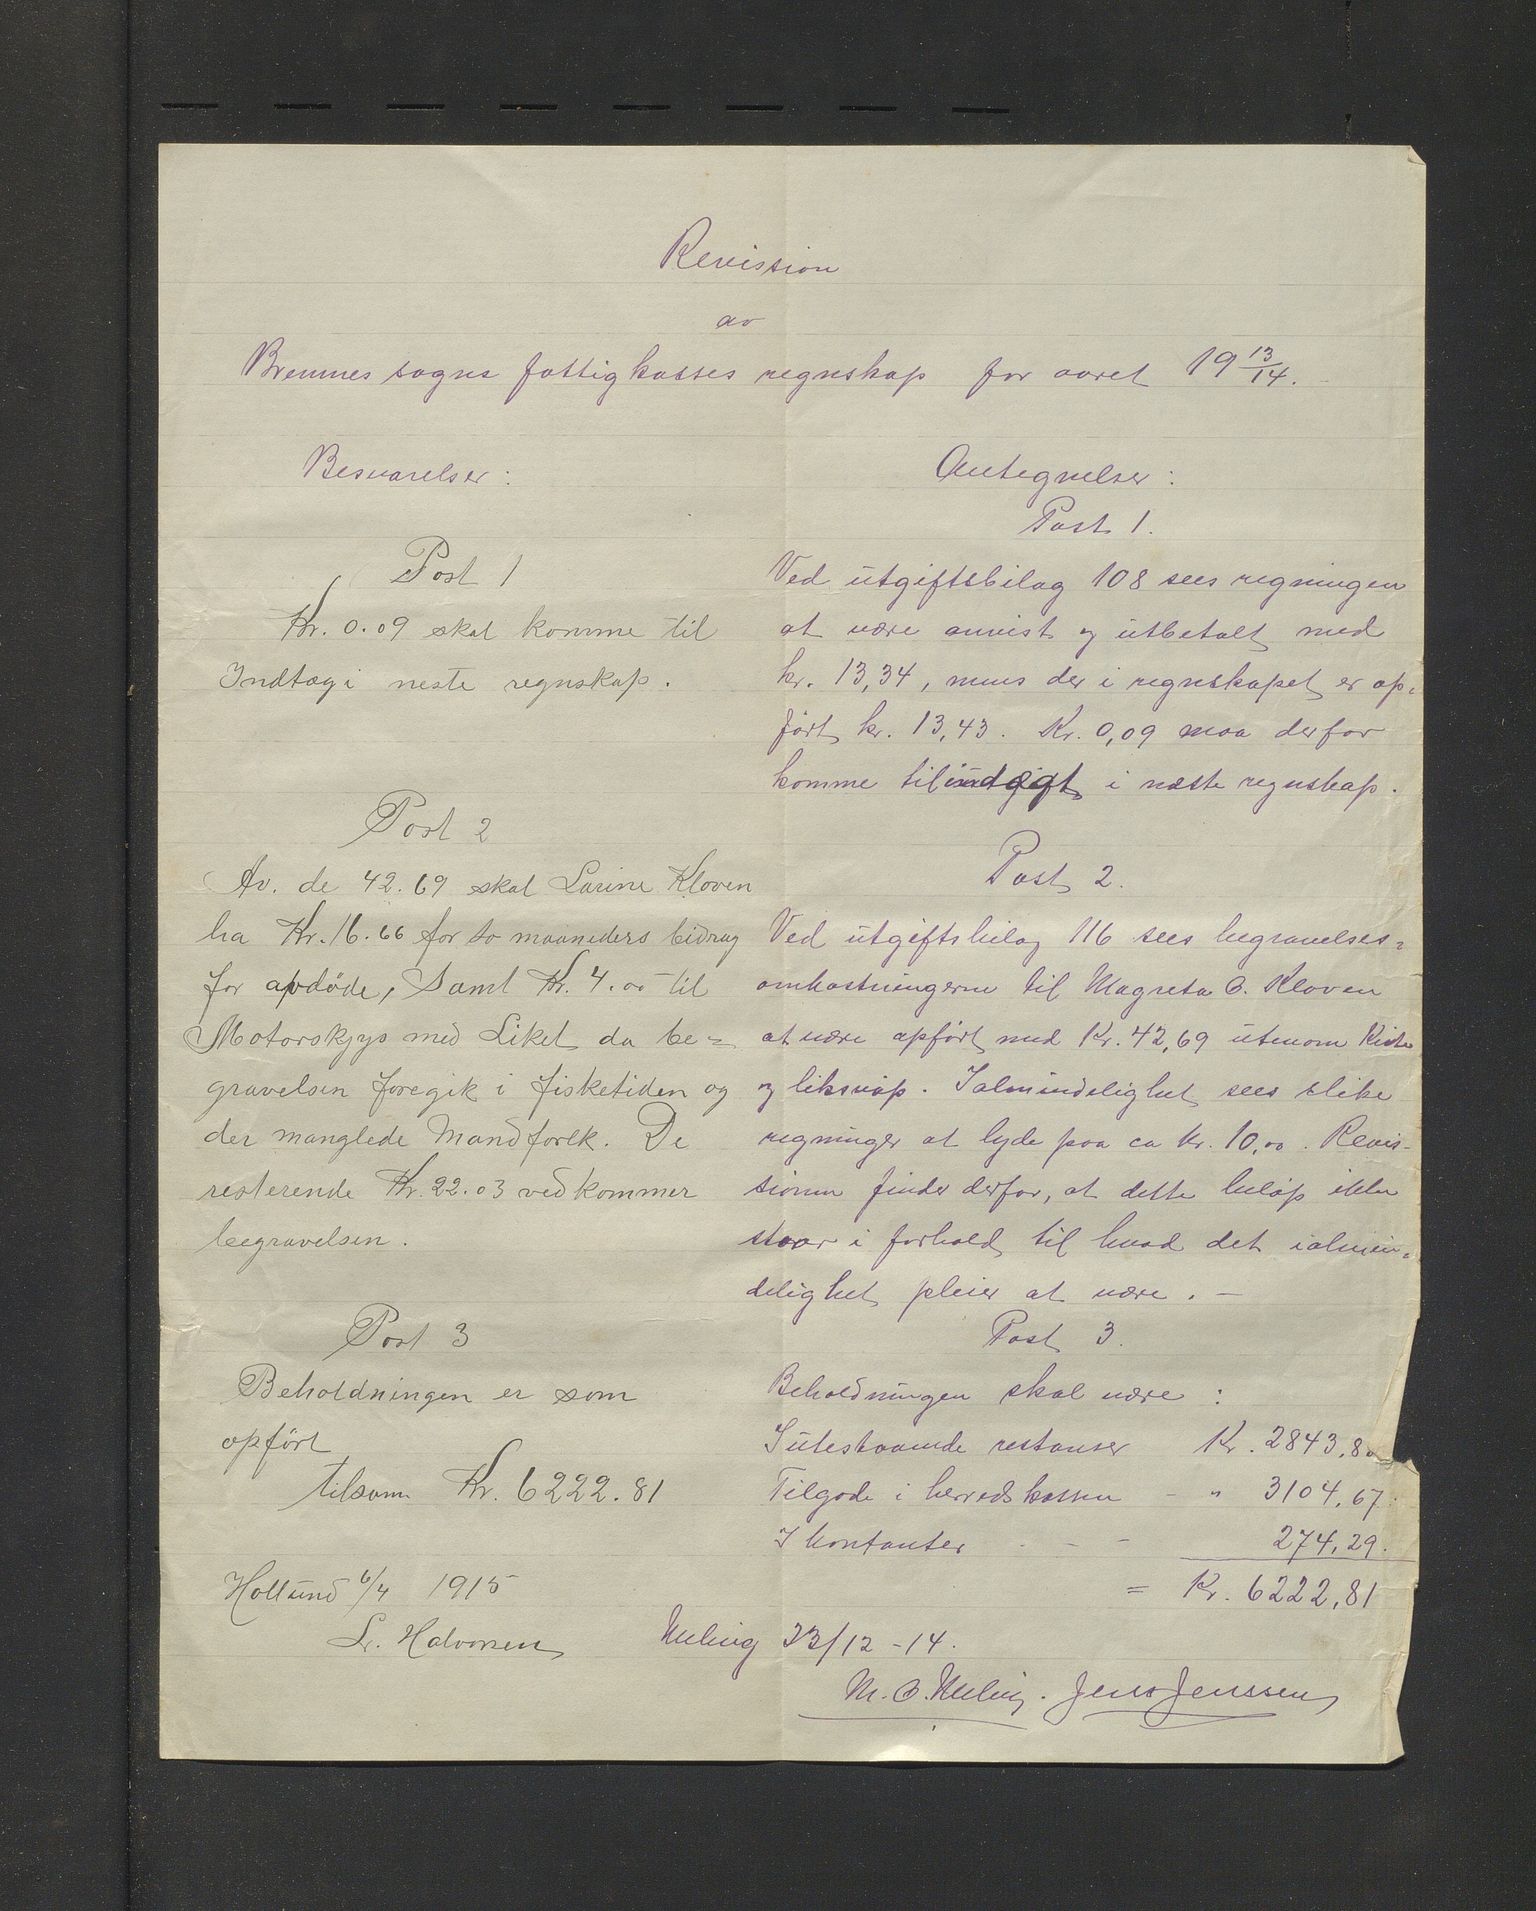 Revission
av
Bremnes sogns fattigkasses regnskap for aaret 19 13/14.
Besvarelser:
Post 1
Kr. 0.09 skal komme til
Indtægi neste regnskap.
Post 2
Av. de 42.69 skal Larine Kloven
ha Kr. 16.66 for to maaneders bidrag
for avdöde, Samt Kr. 4.00 til
Motorskjys med Liket da be=
gravelsen foregik i fisketiden og
der manglede Mandfolk. De
resterende Kr. 22.03 vedkommer
begravelsen.
Post 3
Beholdningen er som
opfört
tilsam Kr. 6222.81
Hollund 6/4 1915
L. Halvorsen
Antegnelser:
Post 1.
Ved utgiftsbilag 108 sees regningen
at være anvist og utbetalt med
kr. 13,34, mens der i regnskapet er op=
ført kr. 13,43. Kr. 0,09 maa derfor
komme til indtægt i næste regnskap.
Post 2.
Ved utgiftsbilag 116 sees begravelses=
omkostningerne til Magreta O. Kloven
at være opført med Kr. 42,69 utenom Kiste
og liksvøp. I almindelighet sees slike
regninger at lyde paa ca Kr. 10,00. Revis-
sionen finder derfor, at dette beløp ikke
staar i forhold til hvad det ialmin=
delighet pleier at være. -
Post 3.
Beholdningen skal være:
I utestaaende restanser Kr. 2843,8
Tilgode i herredskassen - " 3104,67.
I kontanter - - - 274,29.
= Kr. 6222,81
Uuling 23/12 -14.
M. O. Uuling. Jens Jenssen